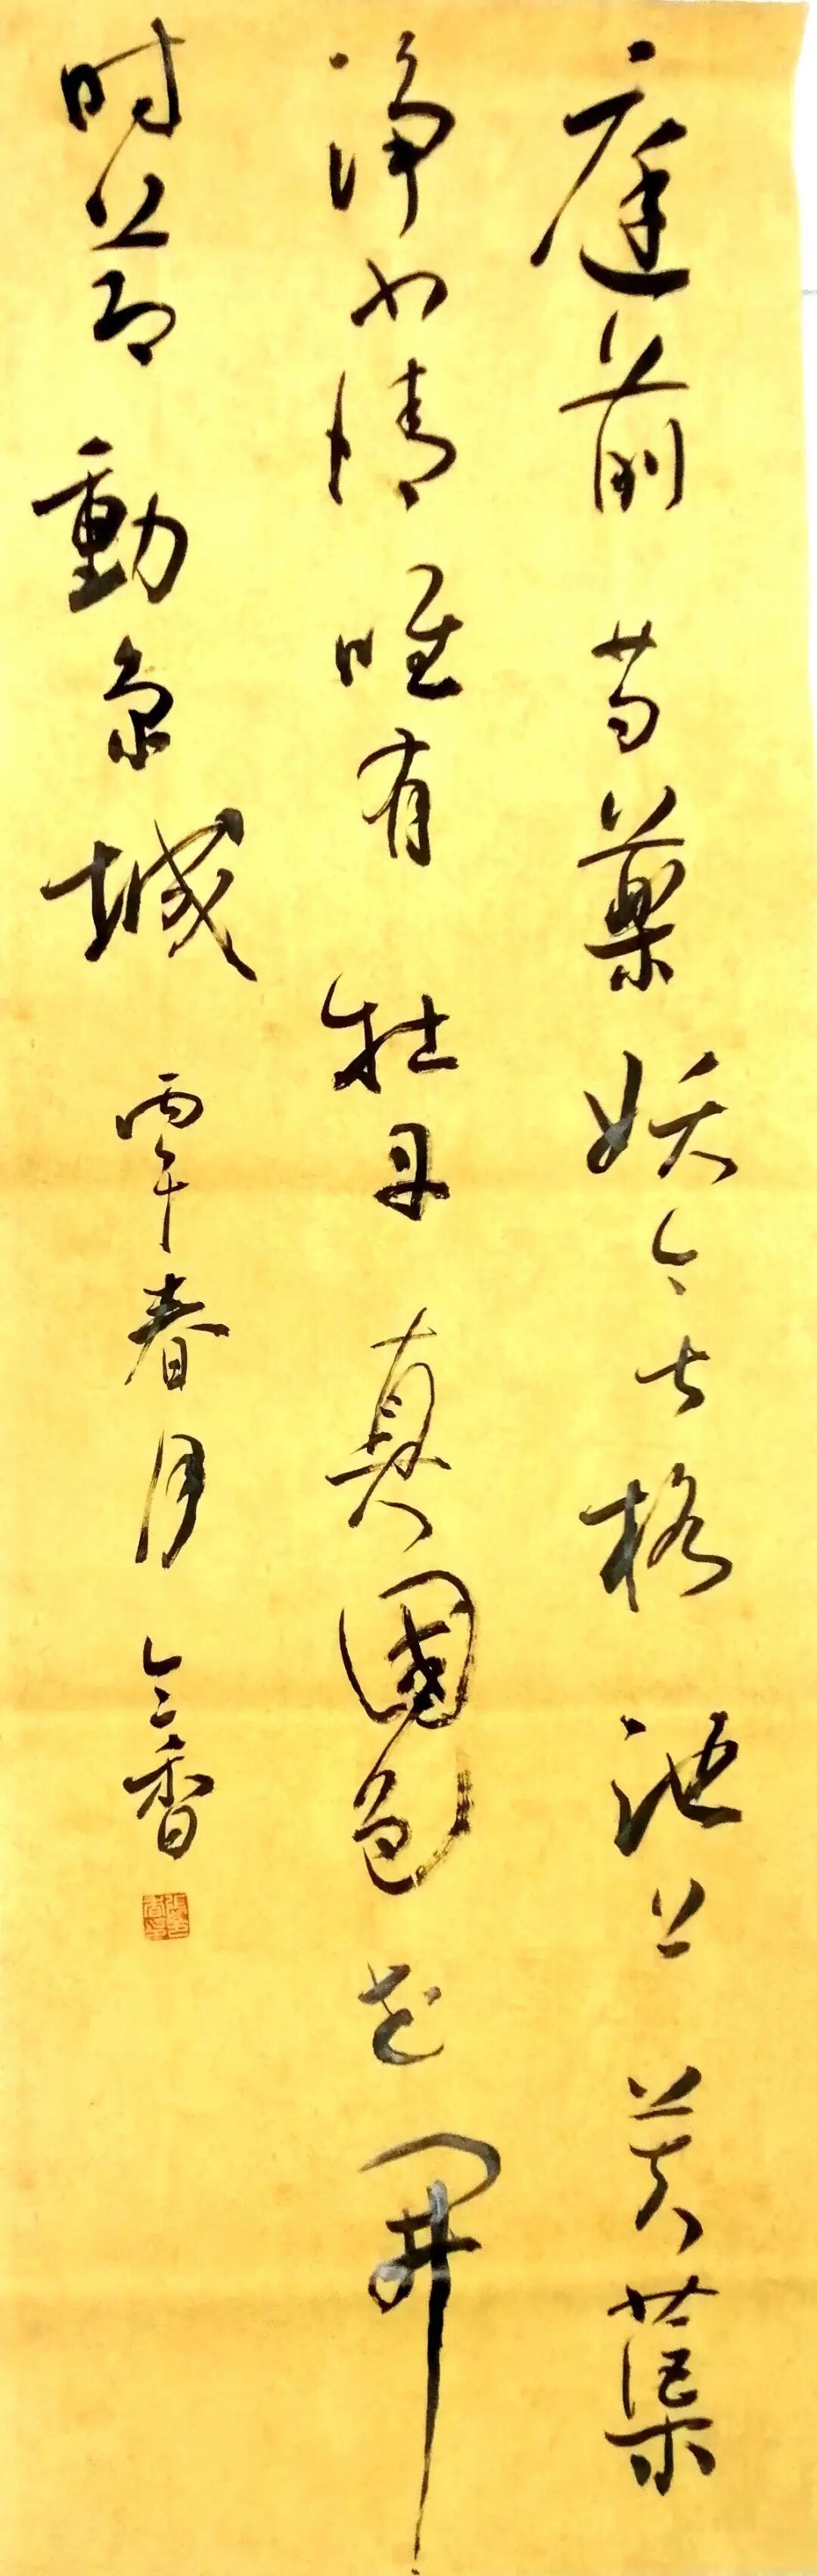 庭前芍藥妖無格池上芙蕖
淨少情唯有牡丹真國色花開
时節動京城 丙午春月 香